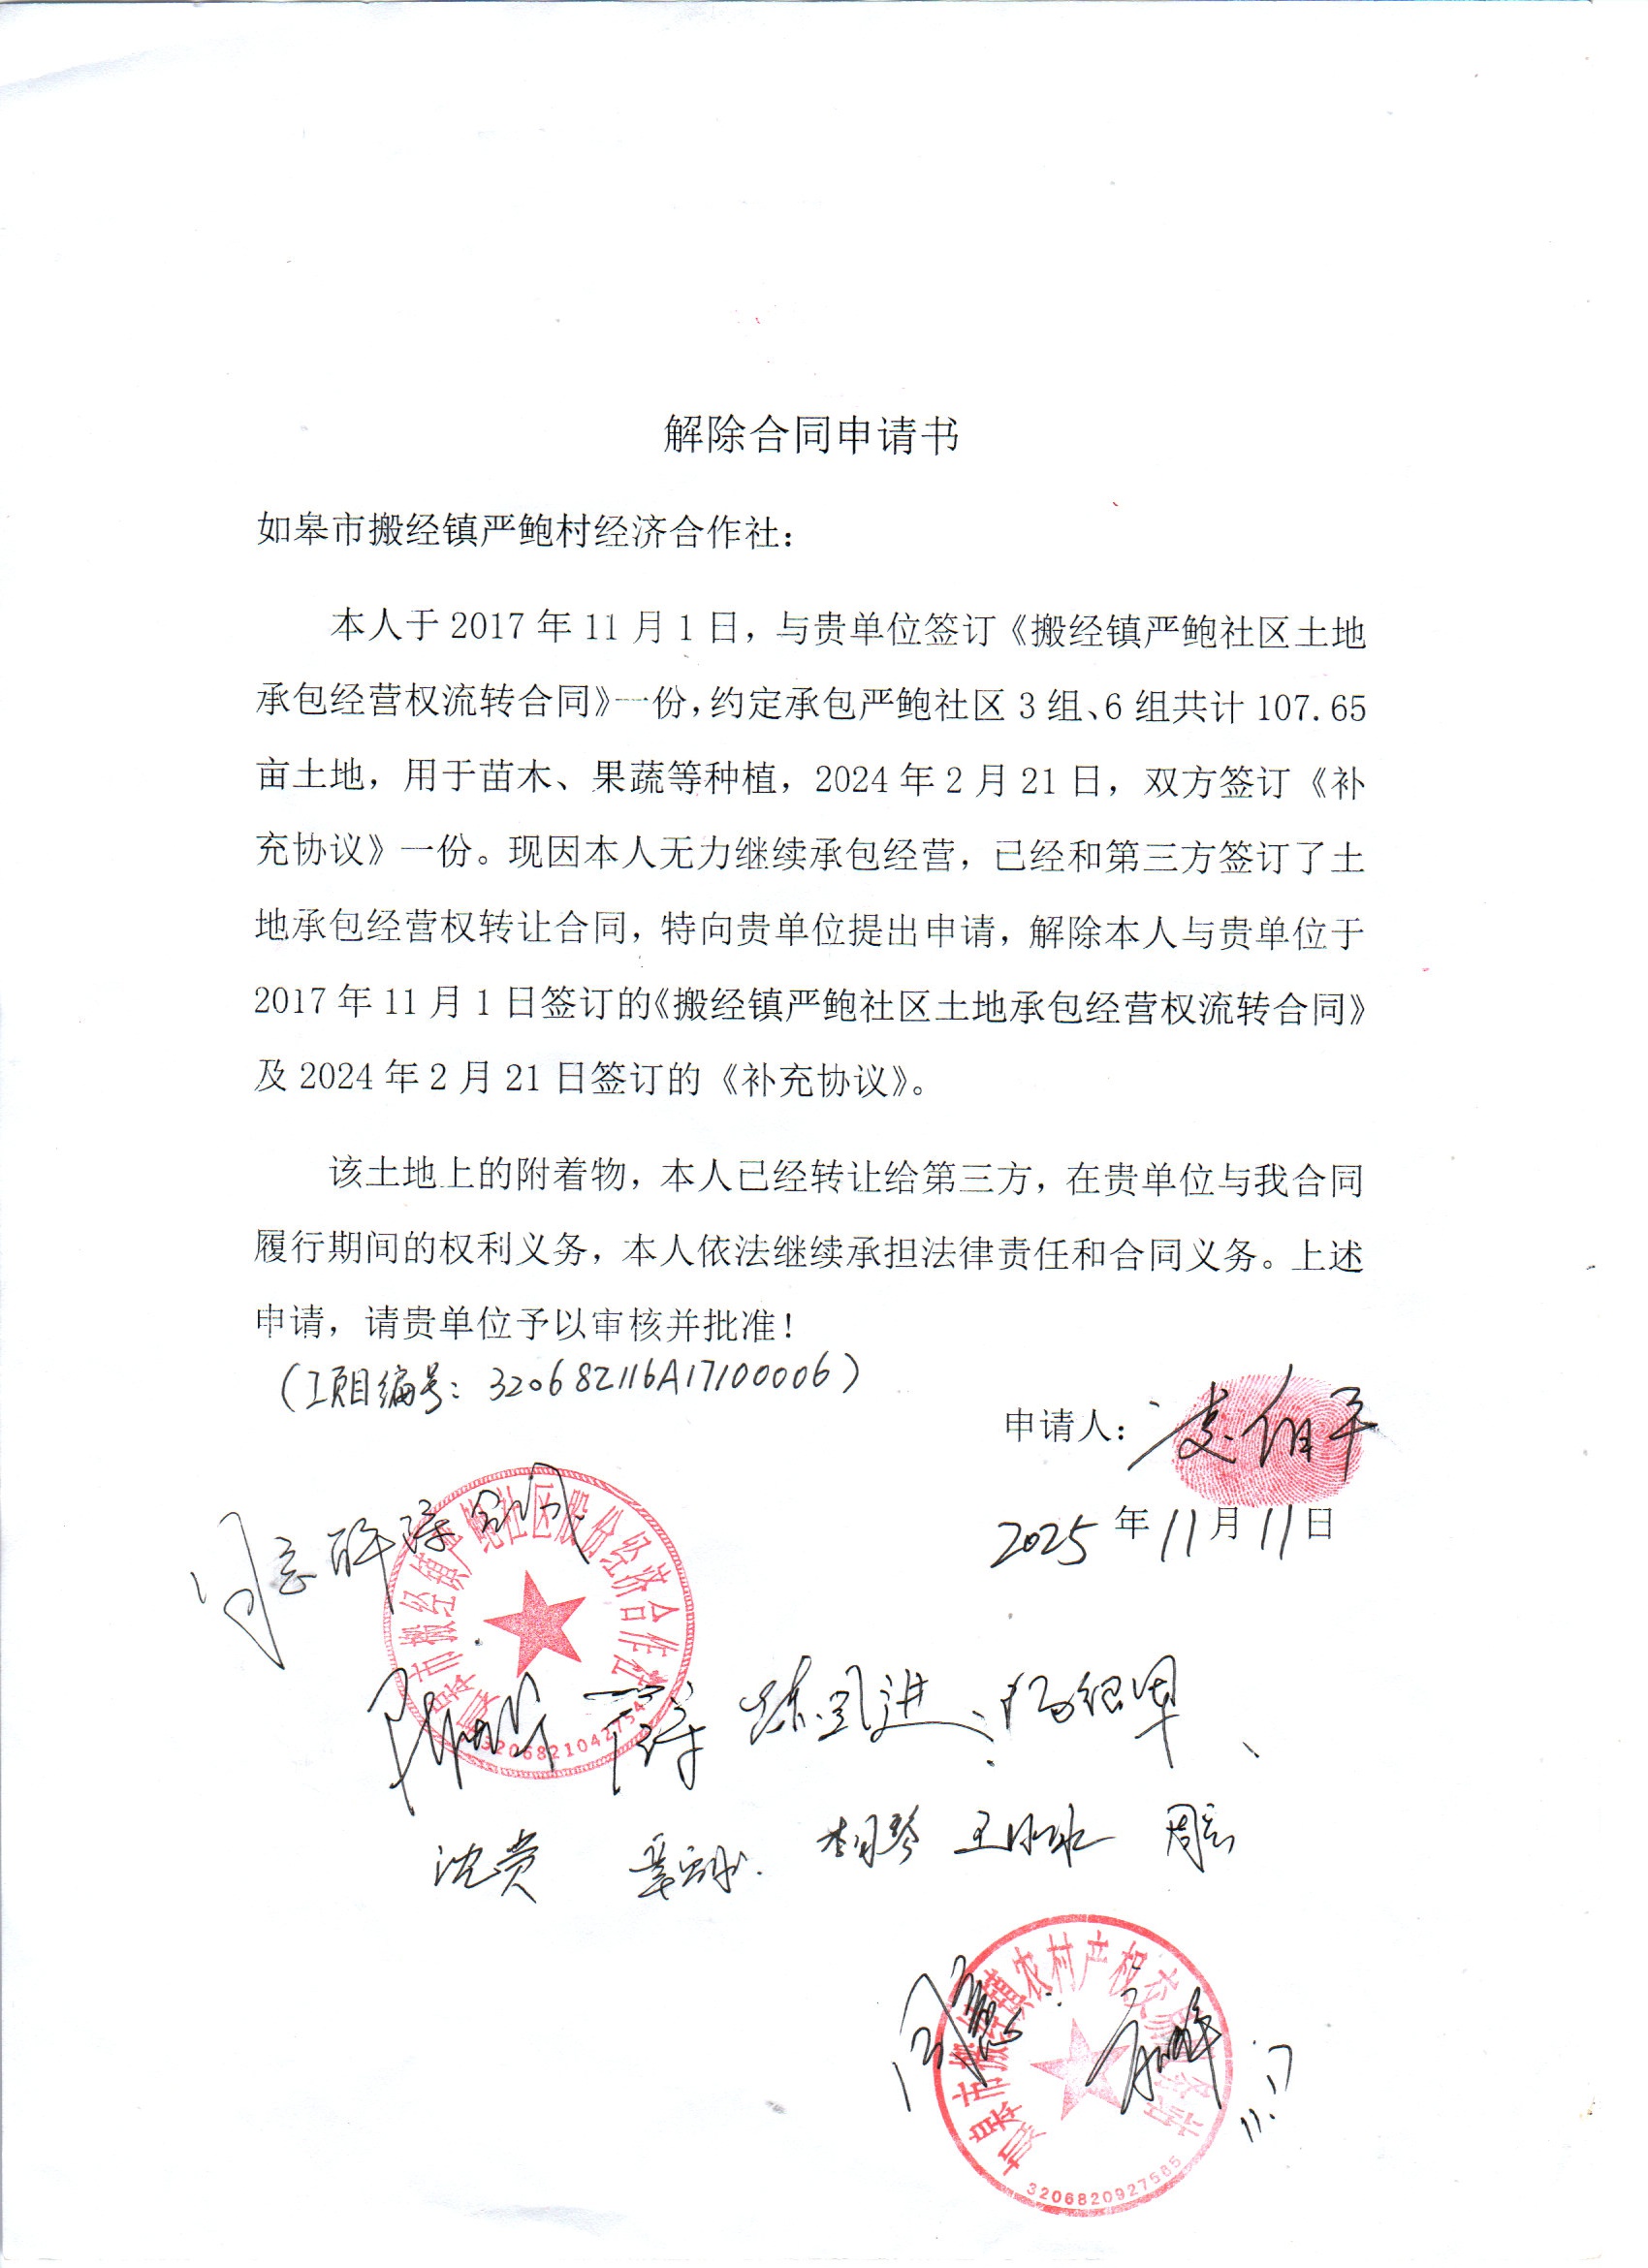 解除合同申请书
如皋市搬经镇严鲍村经济合作社：
本人于 2017 年 11 月 1 日，与贵单位签订《搬经镇严鲍社区土地
承包经营权流转合同》一份，约定承包严鲍社区 3 组、6 组共计 107.65
亩土地，用于苗木、果蔬等种植，2024 年 2 月 21 日，双方签订《补
充协议》一份。现因本人无力继续承包经营，已经和第三方签订了土
地承包经营权转让合同，特向贵单位提出申请，解除本人与贵单位于
2017 年 11 月 1 日签订的《搬经镇严鲍社区土地承包经营权流转合同》
及 2024 年 2 月 21 日签订的《补充协议》。
该土地上的附着物，本人已经转让给第三方，在贵单位与我合同
履行期间的权利义务，本人依法继续承担法律责任和合同义务。上述
申请，请贵单位予以审核并批准！
（项目编号：320682116A17100006）
申请人：
2025 年 11 月 11 日
同意解除合同
如皋市搬经镇严鲍社区股份经济合作社
沈赏
周宏
同意
如皋市搬经镇农村产权交易服务站
3206820927585
11.17